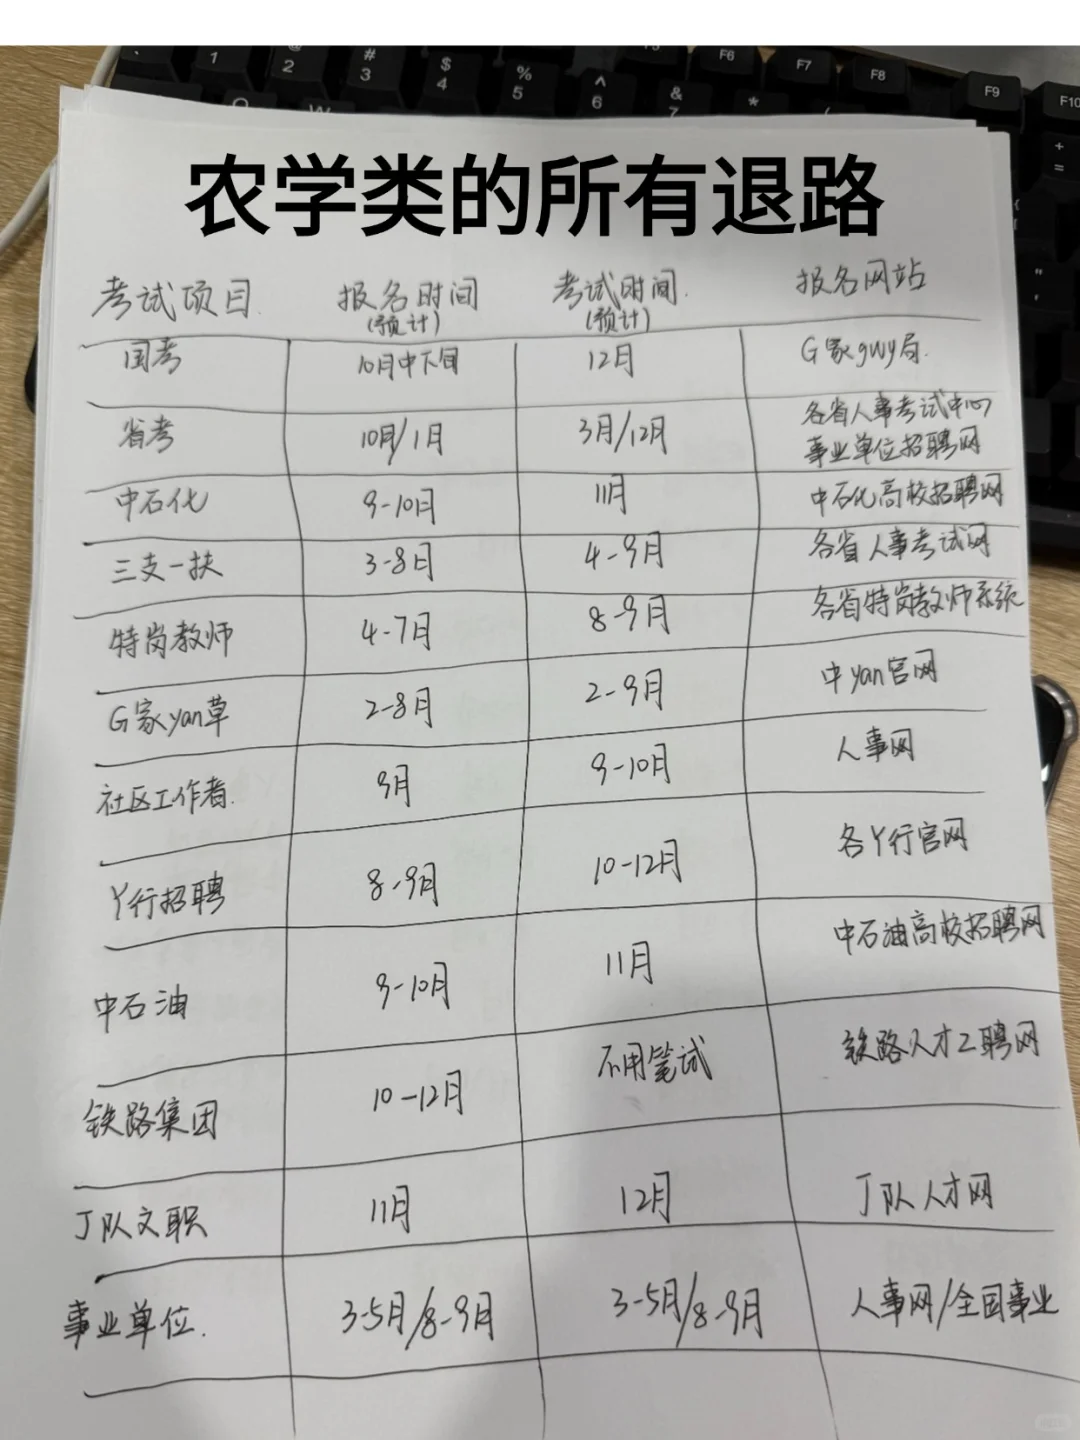 农学类的所有退路
考试项目 报名时间(预计) 考试时间(预计) 报名网站
国考 10月中下旬 12月 G家gwy局
省考 10月/1月 3月/12月 各省人事考试中心
事业单位招聘网
中石化 9-10月 11月 中石化高校招聘网
三支一扶 3-8月 4-9月 各省人事考试网
特岗教师 4-7月 8-9月 各省特岗教师系统
G家yan草 2-8月 2-9月 中yan官网
社区工作者 9月 9-10月 人事网
Y行招聘 8-9月 10-12月 各Y行官网
中石油 9-10月 11月 中石油高校招聘网
铁路集团 10-12月 不用笔试 铁路人才招聘网
J队文职 11月 12月 J队人才网
事业单位. 3-5月/8-9月 3-5月/8-9月 人事网/全国事业
1
@
2
#
3
$
4
%
5
^
6
&
7
*
F6
F7
F8
F9
F10
+
=